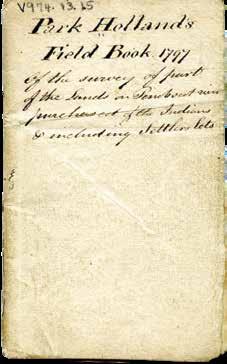 V974.13.L5
Park Holland's
Field Book 1797
Of the survey of part
of the Lands on Penobscot river
purchased of the Indians
& including Settlers lots